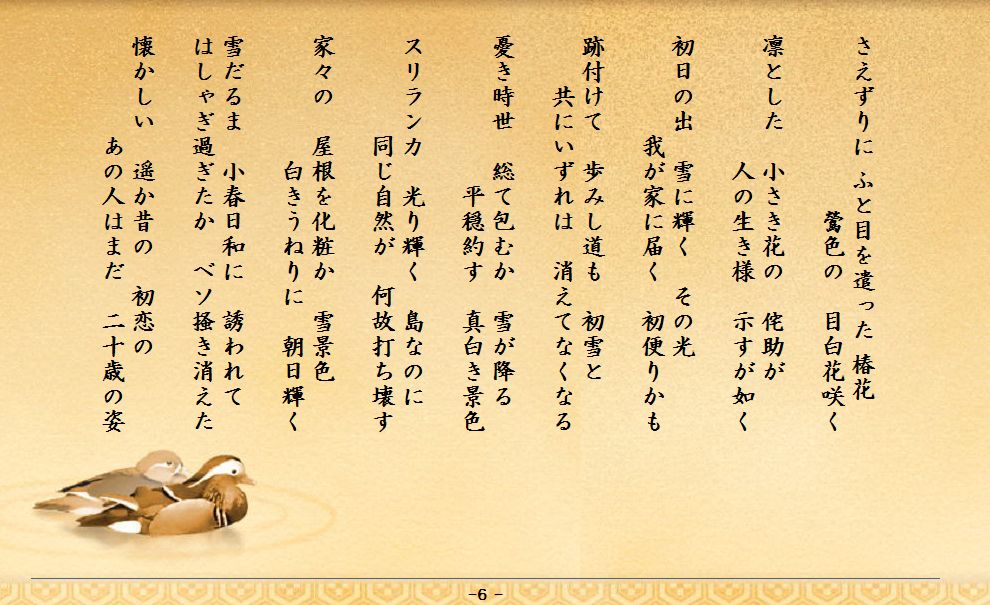 さえずりに ふと目を遣った 椿花
鶯色の 目白花咲く
凛とした 小さき花の 侘助が
人の生き様 示すが如く
初日の出 雪に輝く その光
我が家に届く 初便りかも
跡付けて 歩みし道も 初雪と
共にいずれは 消えてなくなる
憂き時世 総て包むか 雪が降る
平穏約す 真白き景色
スリランカ 光り輝く 島なのに
同じ自然が 何故打ち壊す
家々の 屋根を化粧か 雪景色
白きうねりに 朝日輝く
雪だるま 小春日和に 誘われて
はしゃぎ過ぎたか ベソ掻き消えた
懐かしい 遥か昔の 初恋の
あの人はまだ 二十歳の姿
-6 -